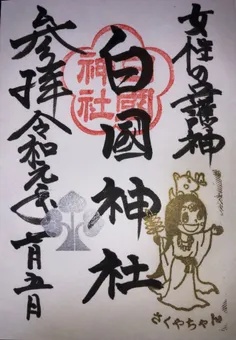 女性の守護神
白國神社
白國神社
参拝 令和元年 月五日
さくやちゃん